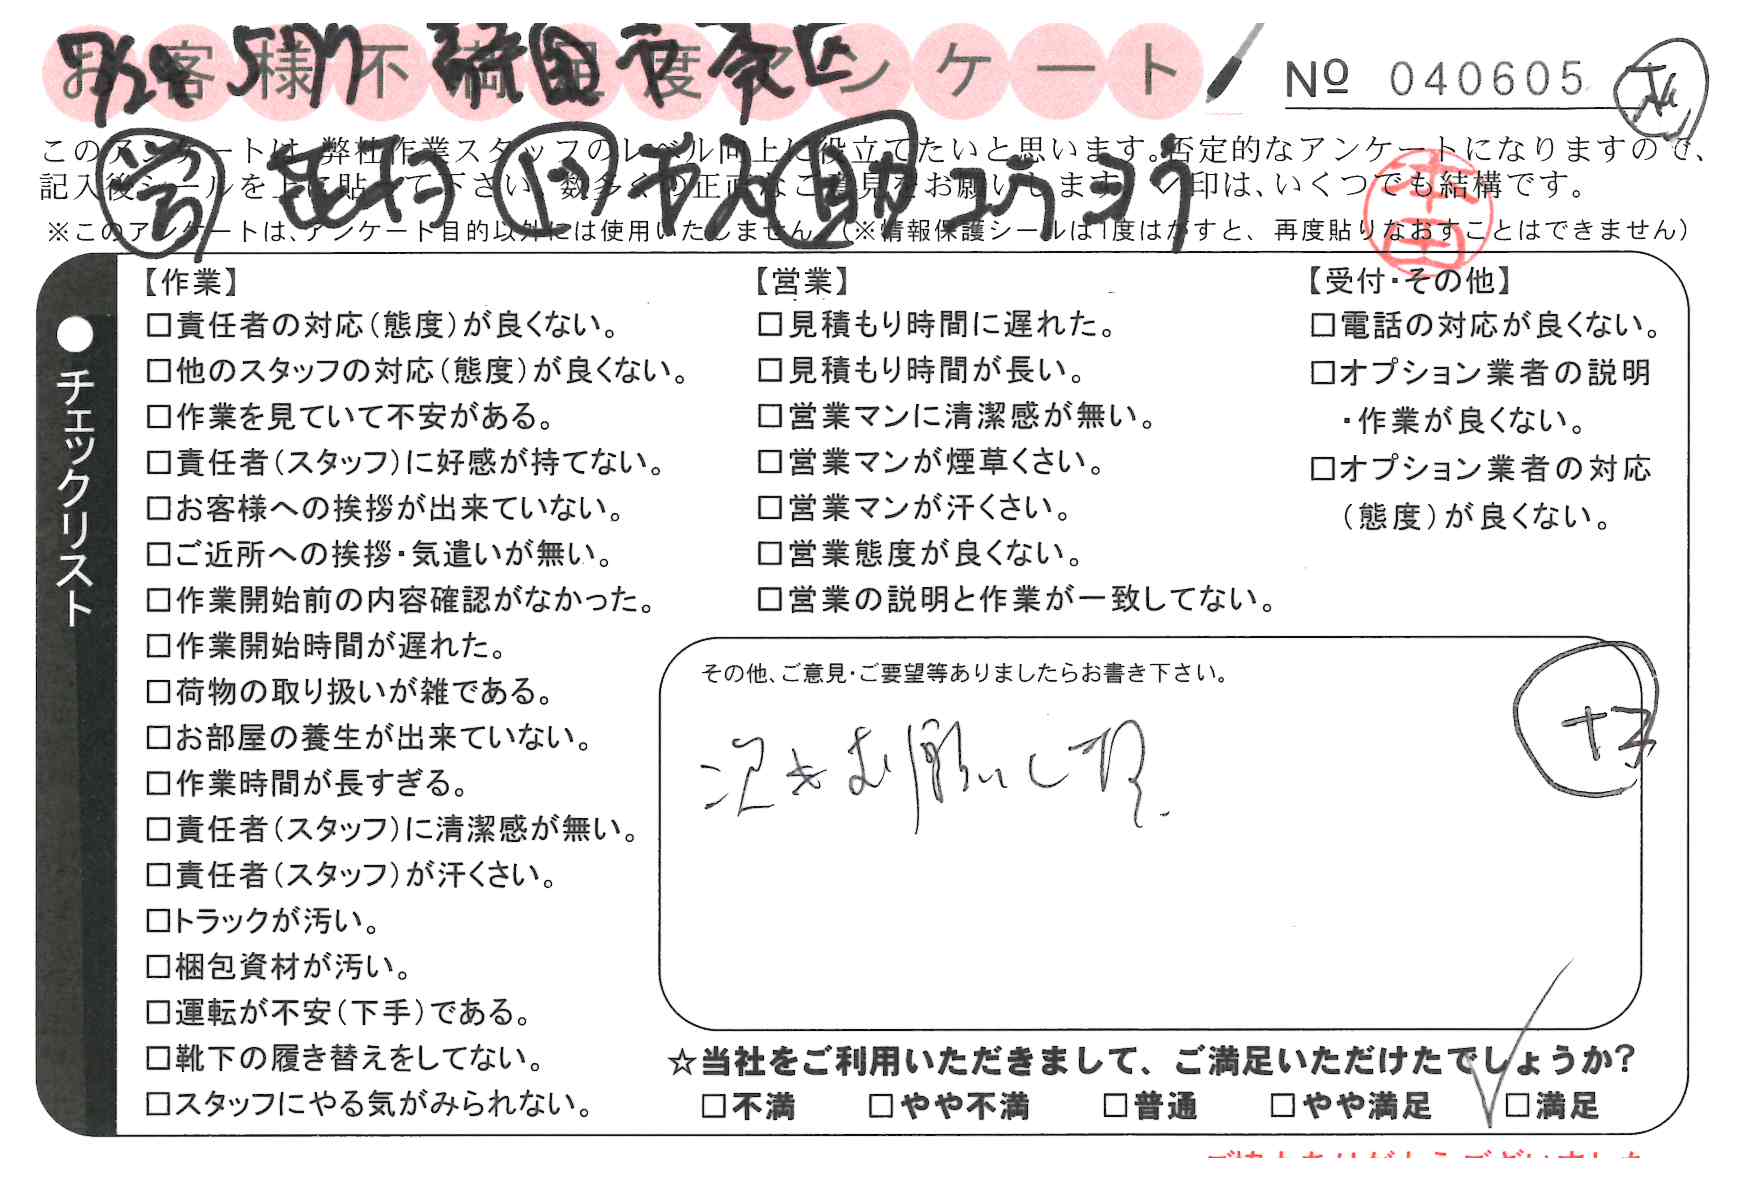 お客様不満足度アンケート
No 040605
このアンケートは、弊社作業スタッフのレベル向上に役立てたいと思います。否定的なアンケートになりますので、
記入後シールを上に貼って下さい、数多くの正直なご意見をお願いします。✓印は、いくつでも結構です。
※このアンケートは、アンケート目的以外には使用いたしません。(※情報保護シールは1度はがすと、再度貼りなおすことはできません)
本田
●チェックリスト
【作業】
□責任者の対応(態度)が良くない。
□他のスタッフの対応(態度)が良くない。
□作業を見ていて不安がある。
□責任者(スタッフ)に好感が持てない。
□お客様への挨拶が出来ていない。
□ご近所への挨拶・気遣いが無い。
□作業開始前の内容確認がなかった。
□作業開始時間が遅れた。
□荷物の取り扱いが雑である。
□お部屋の養生が出来ていない。
□作業時間が長すぎる。
□責任者(スタッフ)に清潔感が無い。
□責任者(スタッフ)が汗くさい。
□トラックが汚い。
□梱包資材が汚い。
□運転が不安(下手)である。
□靴下の履き替えをしてない。
□スタッフにやる気がみられない。
【営業】
□見積もり時間に遅れた。
□見積もり時間が長い。
□営業マンに清潔感が無い。
□営業マンが煙草くさい。
□営業マンが汗くさい。
□営業態度が良くない。
□営業の説明と作業が一致してない。
【受付・その他】
□電話の対応が良くない。
□オプション業者の説明
・作業が良くない。
□オプション業者の対応
(態度)が良くない。
その他、ご意見・ご要望等ありましたらお書き下さい。
☆当社をご利用いただきまして、ご満足いただけたでしょうか?
□不満 □やや不満 □普通 □やや満足 □満足